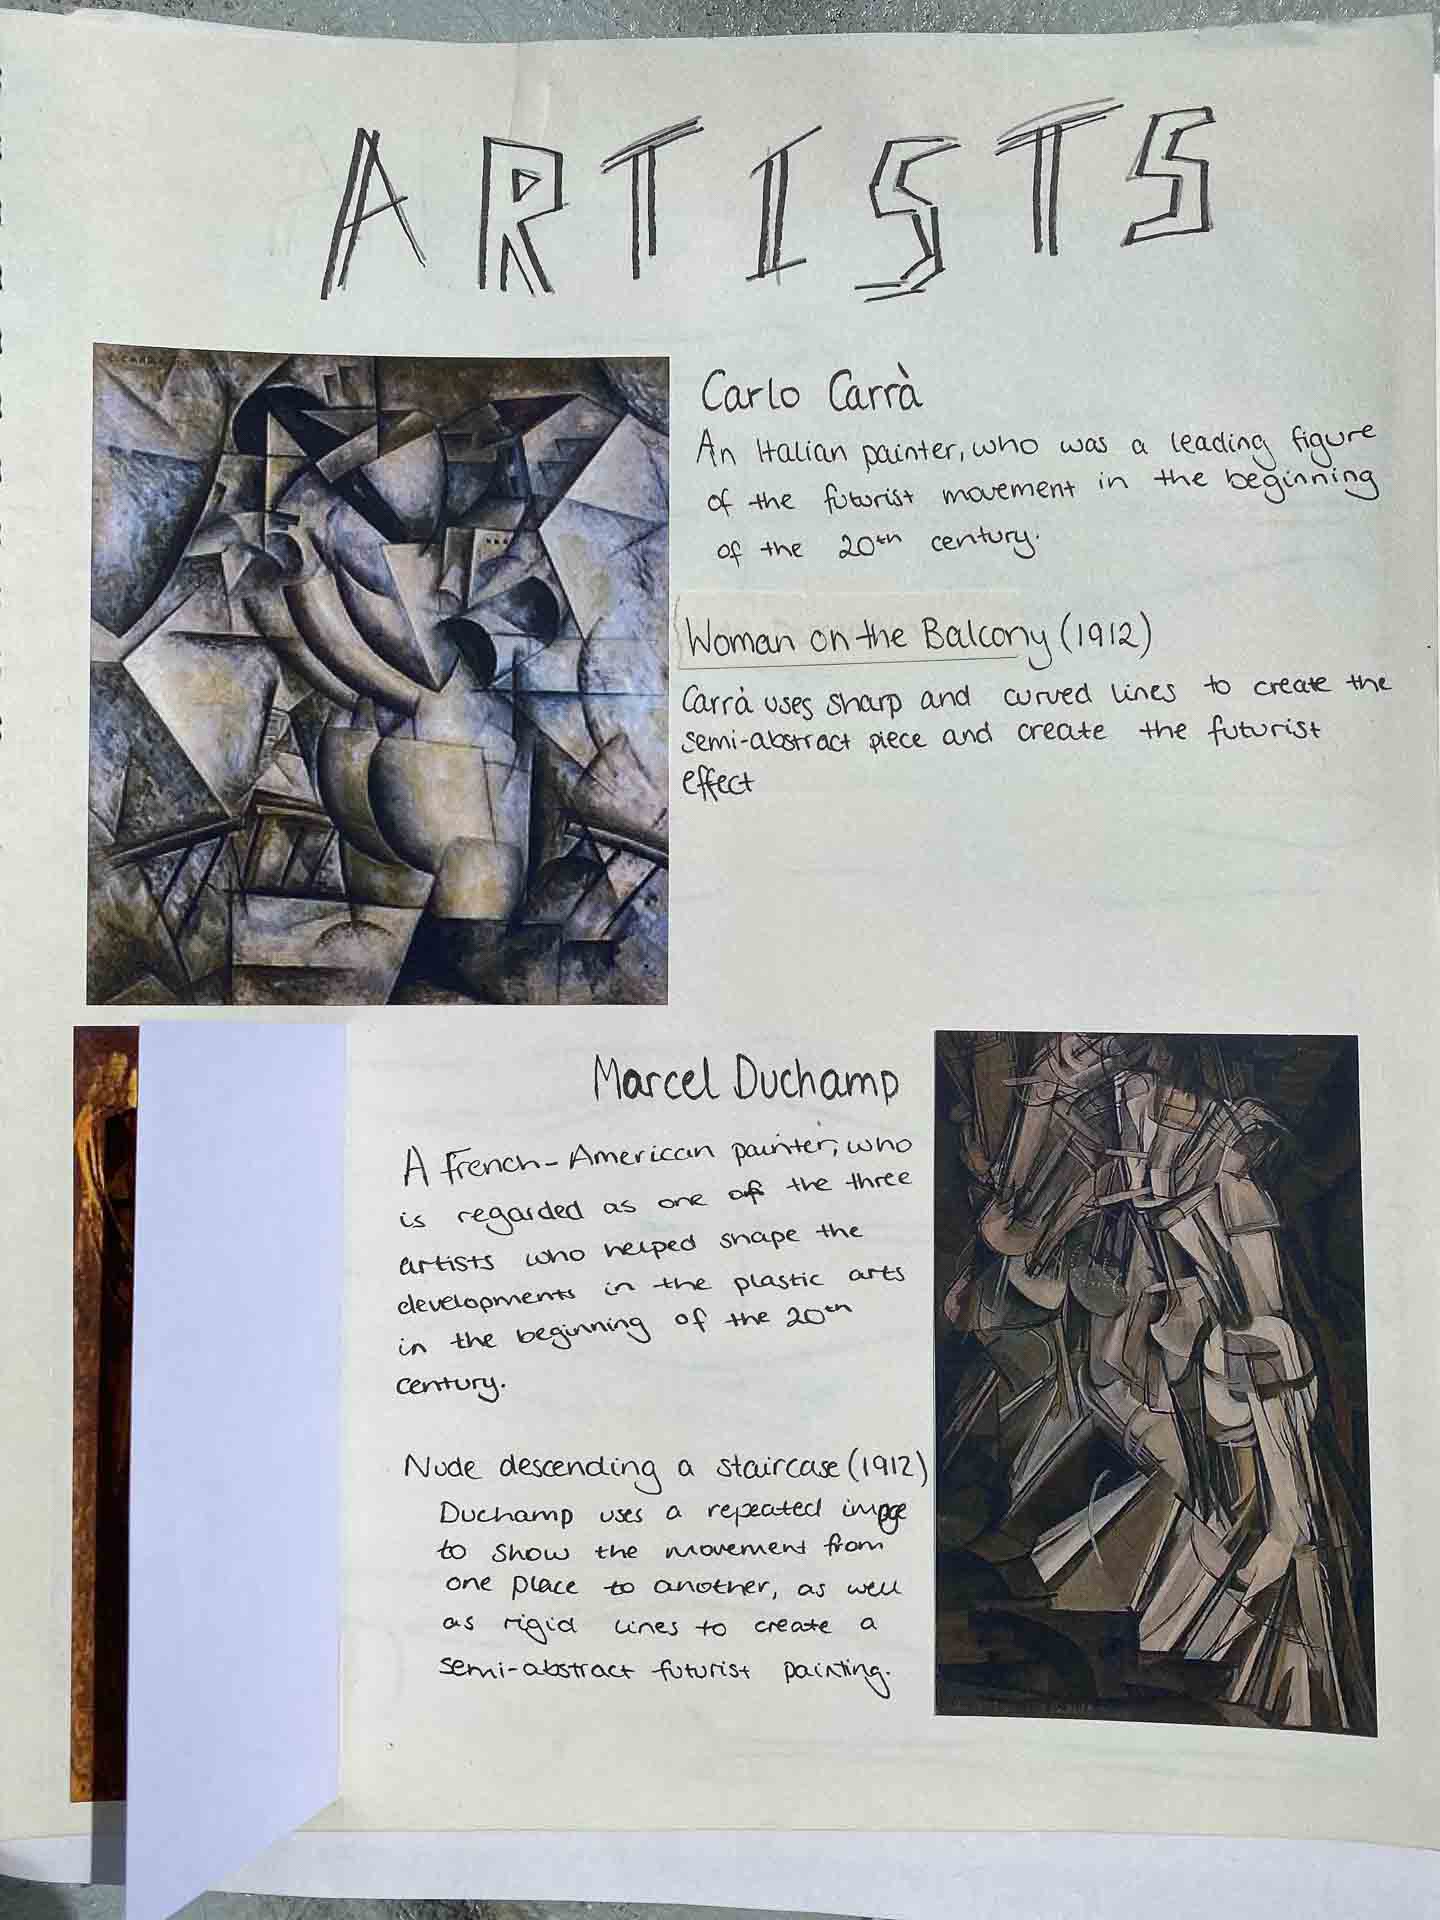 ARTISTS
C. CARRÀ
Carlo Carrà
An Italian painter, who was a leading figure
of the futurist movement in the beginning
of the 20th century.
Woman on the Balcony (1912)
Carrà uses sharp and curved lines to create the
semi-abstract piece and create the futurist
effect
Marcel Duchamp
A French-American painter, who
is regarded as one of the three
artists who helped shape the
developments in the plastic arts
in the beginning of the 20th
century.
Nude descending a staircase (1912)
Duchamp uses a repeated image
to show the movement from
one place to another, as well
as rigid lines to create a
semi-abstract futurist painting.